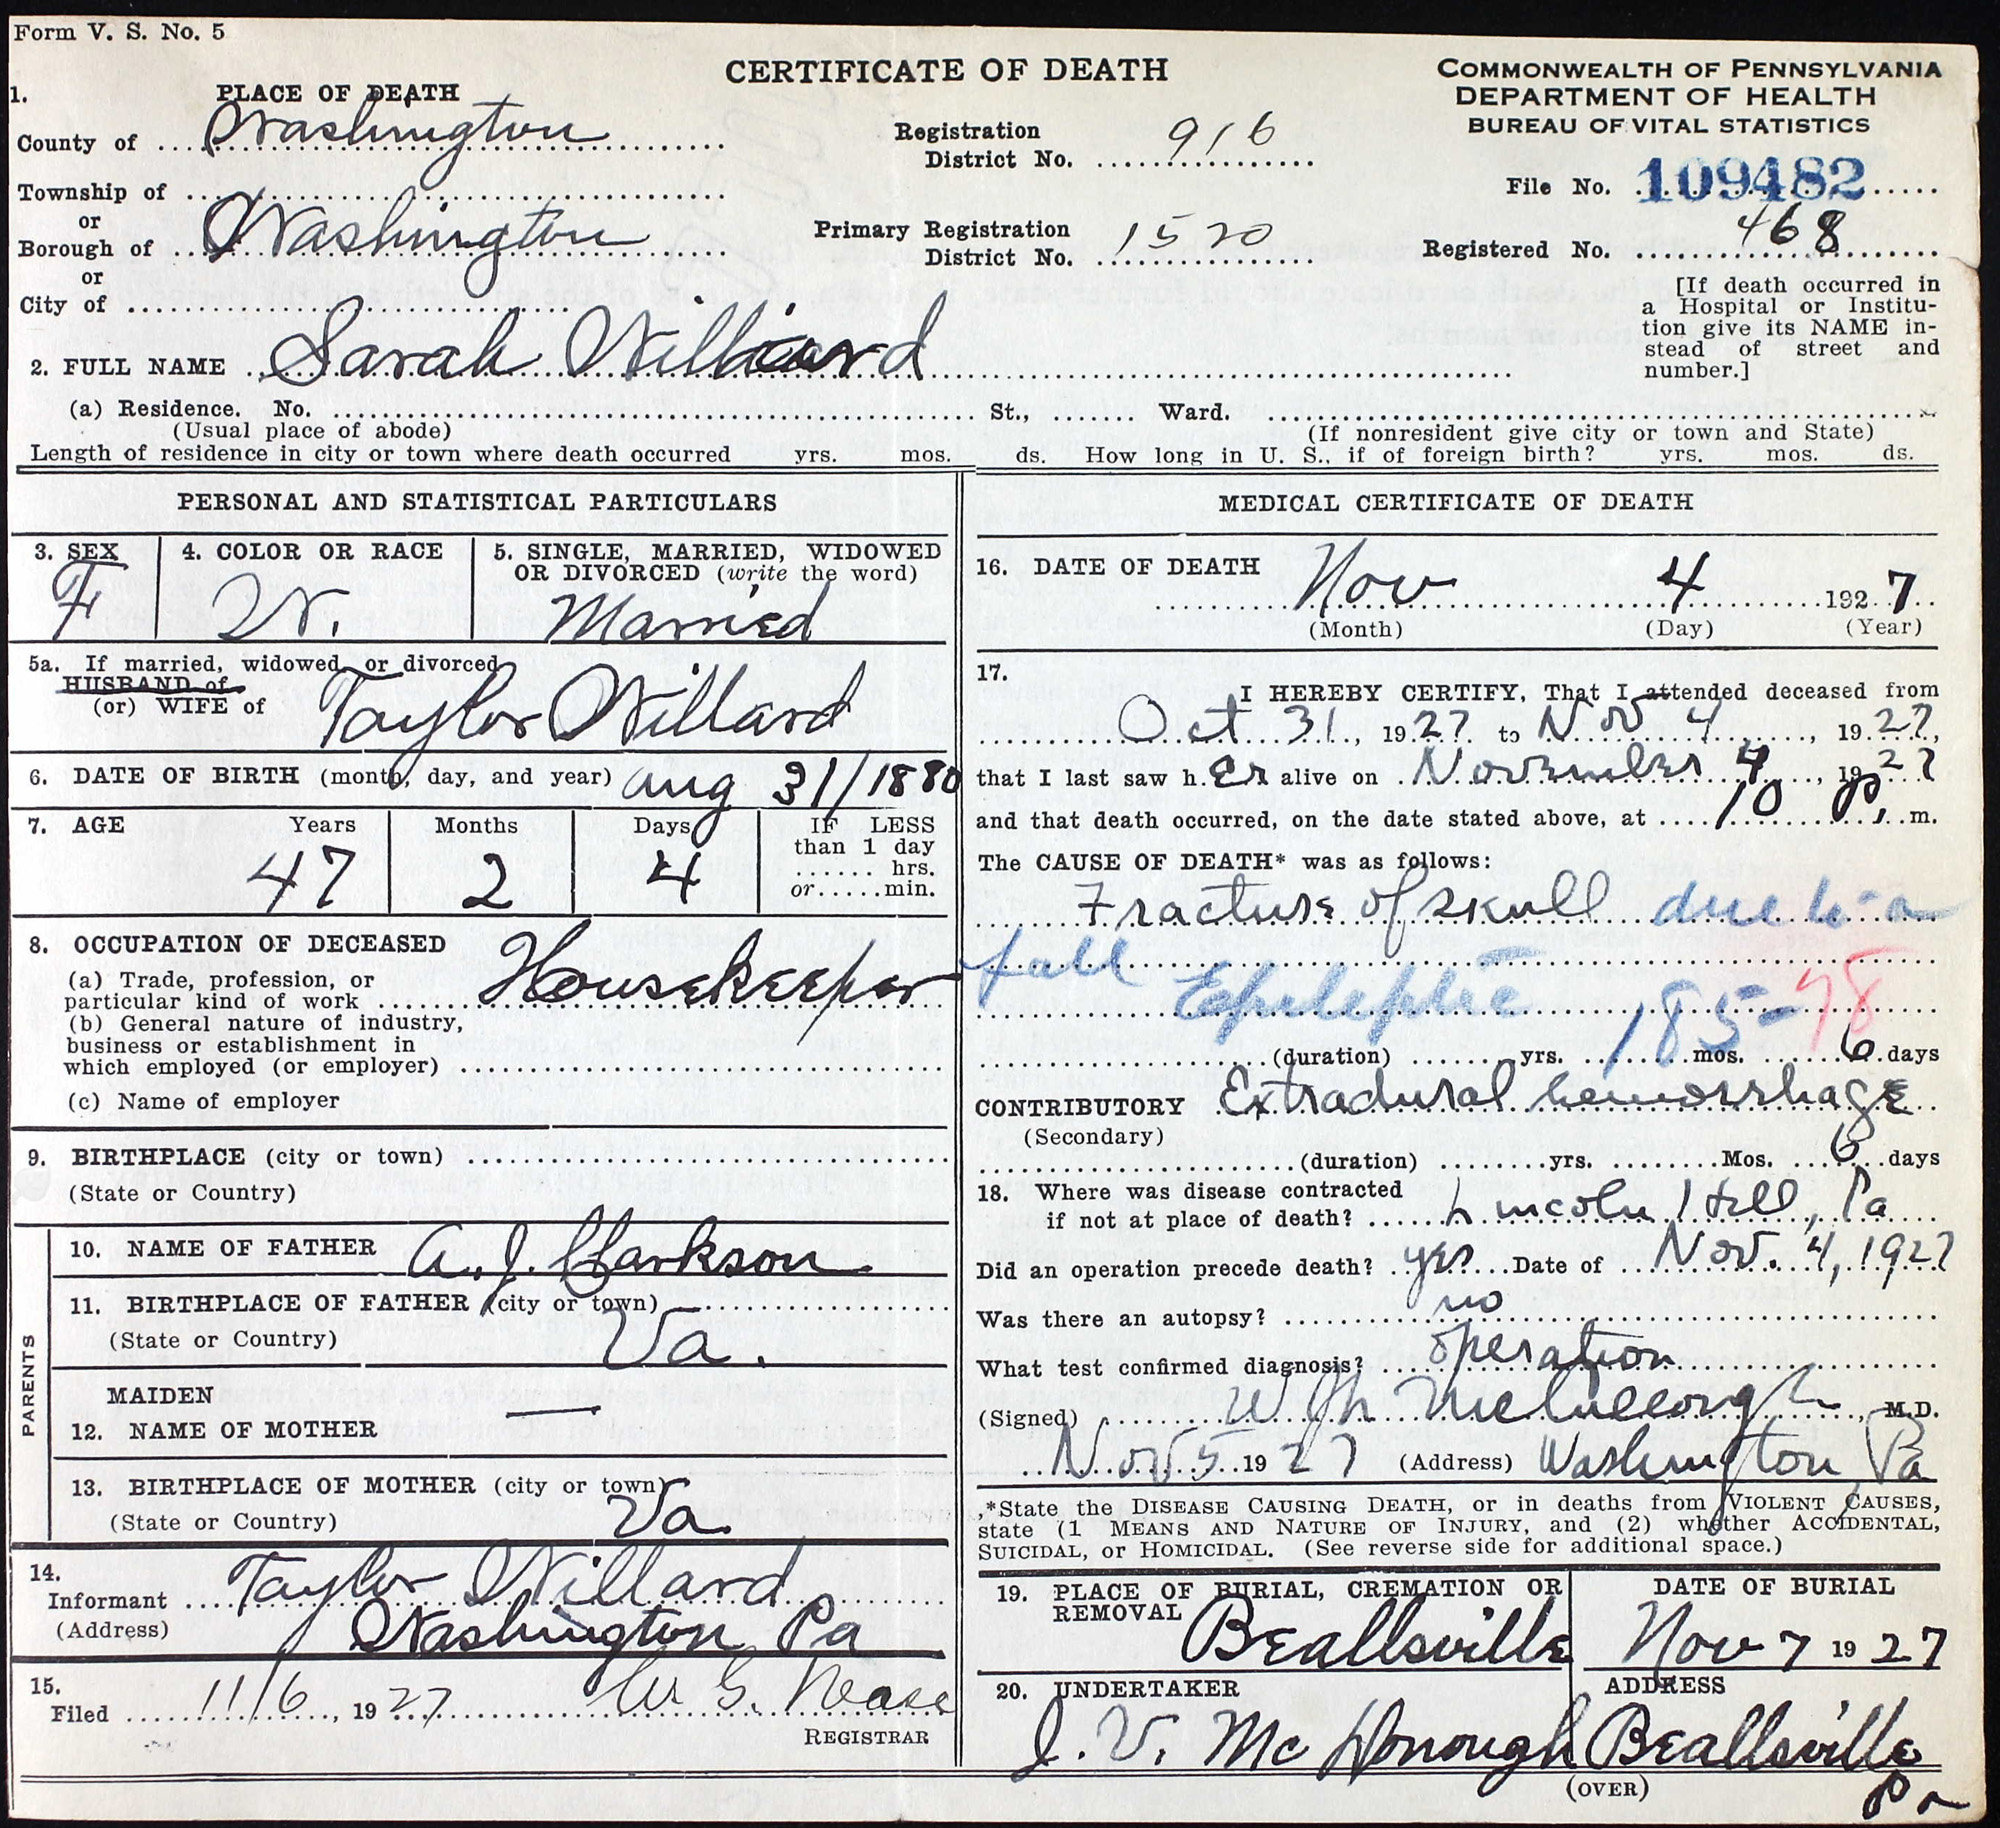 Form V. S. No. 5
CERTIFICATE OF DEATH
COMMONWEALTH OF PENNSYLVANIA
DEPARTMENT OF HEALTH
BUREAU OF VITAL STATISTICS
1. PLACE OF DEATH
County of Washington
Registration District No. 916
File No. 109482
Township of
or
Borough of Washington
Primary Registration District No. 1520
Registered No. 468
or
City of
[If death occurred in
a Hospital or Institu-
tion give its NAME in-
stead of street and
number.]
2. FULL NAME Sarah Willard
(a) Residence. No. St., Ward.
(Usual place of abode) (If nonresident give city or town and State)
Length of residence in city or town where death occurred yrs. mos. ds. How long in U. S., if of foreign birth? yrs. mos. ds.
PERSONAL AND STATISTICAL PARTICULARS
3. SEX
F
4. COLOR OR RACE
W.
5. SINGLE, MARRIED, WIDOWED
OR DIVORCED (write the word)
Married
5a. If married, widowed, or divorced
HUSBAND of
(or) WIFE of Taylor Willard
6. DATE OF BIRTH (month, day, and year) Aug 31/1880
7. AGE Years Months Days IF LESS
than 1 day
hrs.
or min.
47 2 4
8. OCCUPATION OF DECEASED
(a) Trade, profession, or
particular kind of work Housekeeper
(b) General nature of industry,
business or establishment in
which employed (or employer)
(c) Name of employer
9. BIRTHPLACE (city or town)
(State or Country)
PARENTS
10. NAME OF FATHER A. J. Clarkson
11. BIRTHPLACE OF FATHER (city or town)
(State or Country) Va.
MAIDEN
12. NAME OF MOTHER —
13. BIRTHPLACE OF MOTHER (city or town)
(State or Country) Va
14.
Informant Taylor Willard
(Address) Washington Pa
15.
Filed 11/6, 1927 W G. Nease
REGISTRAR
MEDICAL CERTIFICATE OF DEATH
16. DATE OF DEATH Nov 4 1927
(Month) (Day) (Year)
17.
I HEREBY CERTIFY, That I attended deceased from
Oct 31, 1927 to Nov 4, 1927,
that I last saw her alive on November 4, 1927
and that death occurred, on the date stated above, at 10 P. m.
The CAUSE OF DEATH* was as follows:
Fracture of skull due to a
fall
Epileptic 185-78
(duration) yrs. mos. 6 days
CONTRIBUTORY Extradural hemorrhage
(Secondary)
(duration) yrs. Mos. 6 days
18. Where was disease contracted
if not at place of death? Lincoln Hill, Pa
Did an operation precede death? yes Date of Nov. 4, 1927
Was there an autopsy? no
What test confirmed diagnosis? operation
(Signed) McCullough, M.D.
Nov 5 1927 (Address) Washington Pa
*State the DISEASE CAUSING DEATH, or in deaths from VIOLENT CAUSES,
state (1 MEANS AND NATURE OF INJURY, and (2) whether ACCIDENTAL,
SUICIDAL, or HOMICIDAL. (See reverse side for additional space.)
19. PLACE OF BURIAL, CREMATION OR
REMOVAL
Beallsville
DATE OF BURIAL
Nov 7 1927
20. UNDERTAKER
J. V. McDonough
ADDRESS
Beallsville
Pa
(OVER)